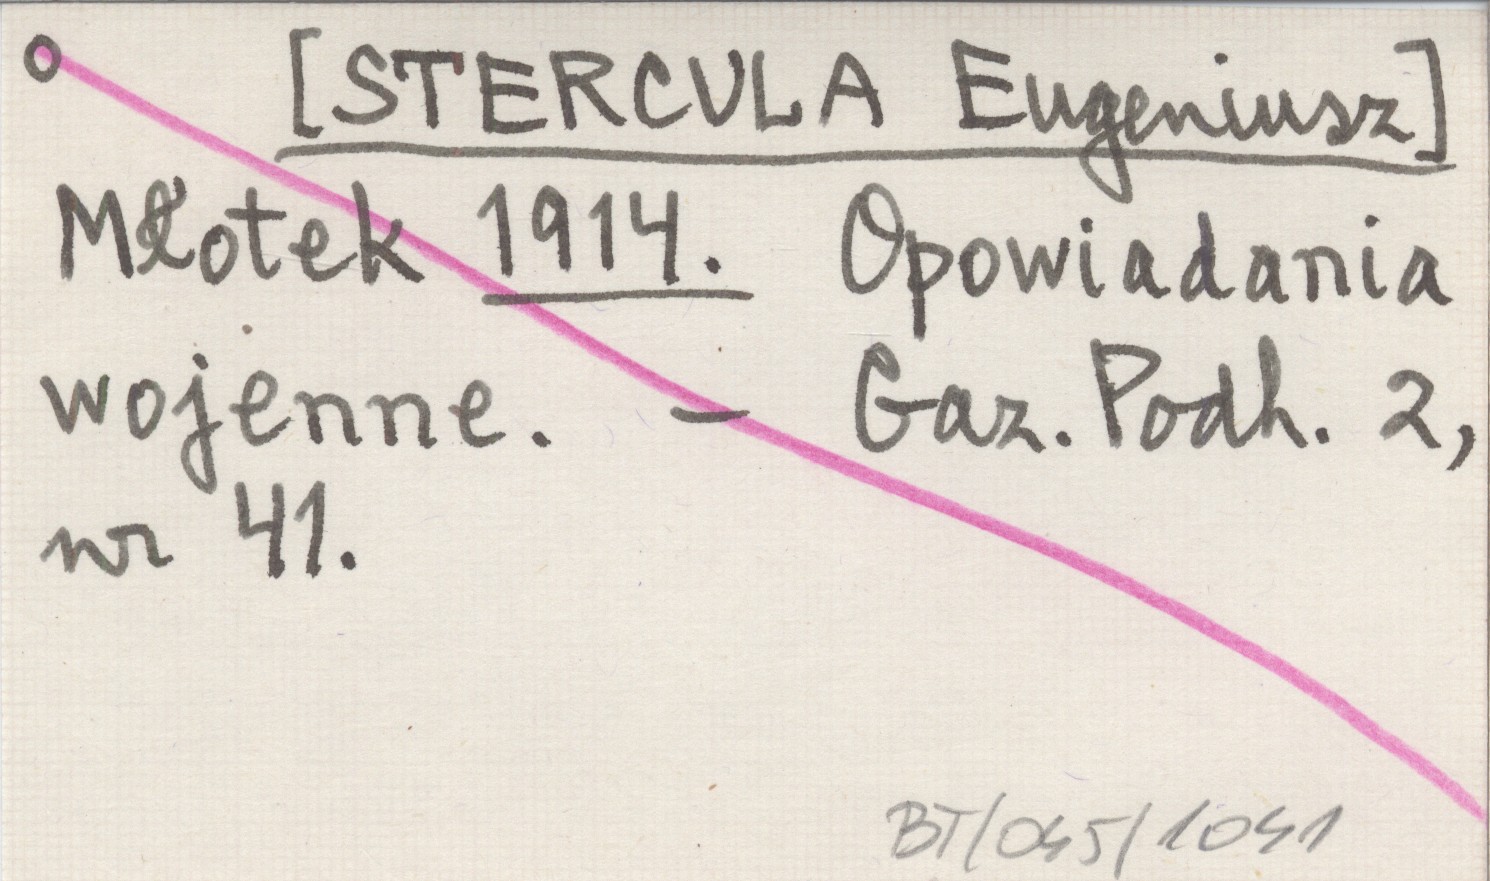 o [STERCULA Eugeniusz]
Młotek 1914. Opowiadania
wojenne. – Gaz. Podh. 2,
nr 41.
BT/045/1041